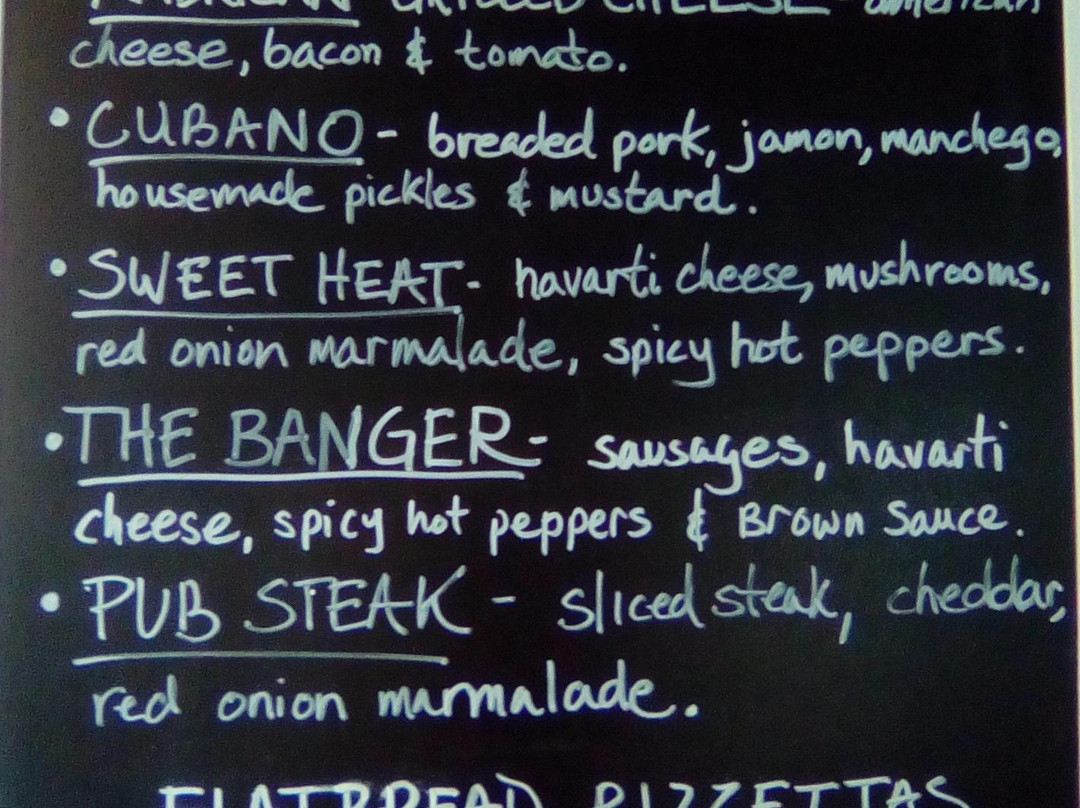 AMERICAN GRILLED CHEESE - american
cheese, bacon & tomato.
• CUBANO - breaded pork, jamon, manchego,
housemade pickles & mustard.
• SWEET HEAT - havarti cheese, mushrooms,
red onion marmalade, spicy hot peppers.
• THE BANGER - sausages, havarti
cheese, spicy hot peppers & Brown Sauce.
• PUB STEAK - sliced steak, cheddar,
red onion marmalade.
FLATBREAD PIZZETTAS